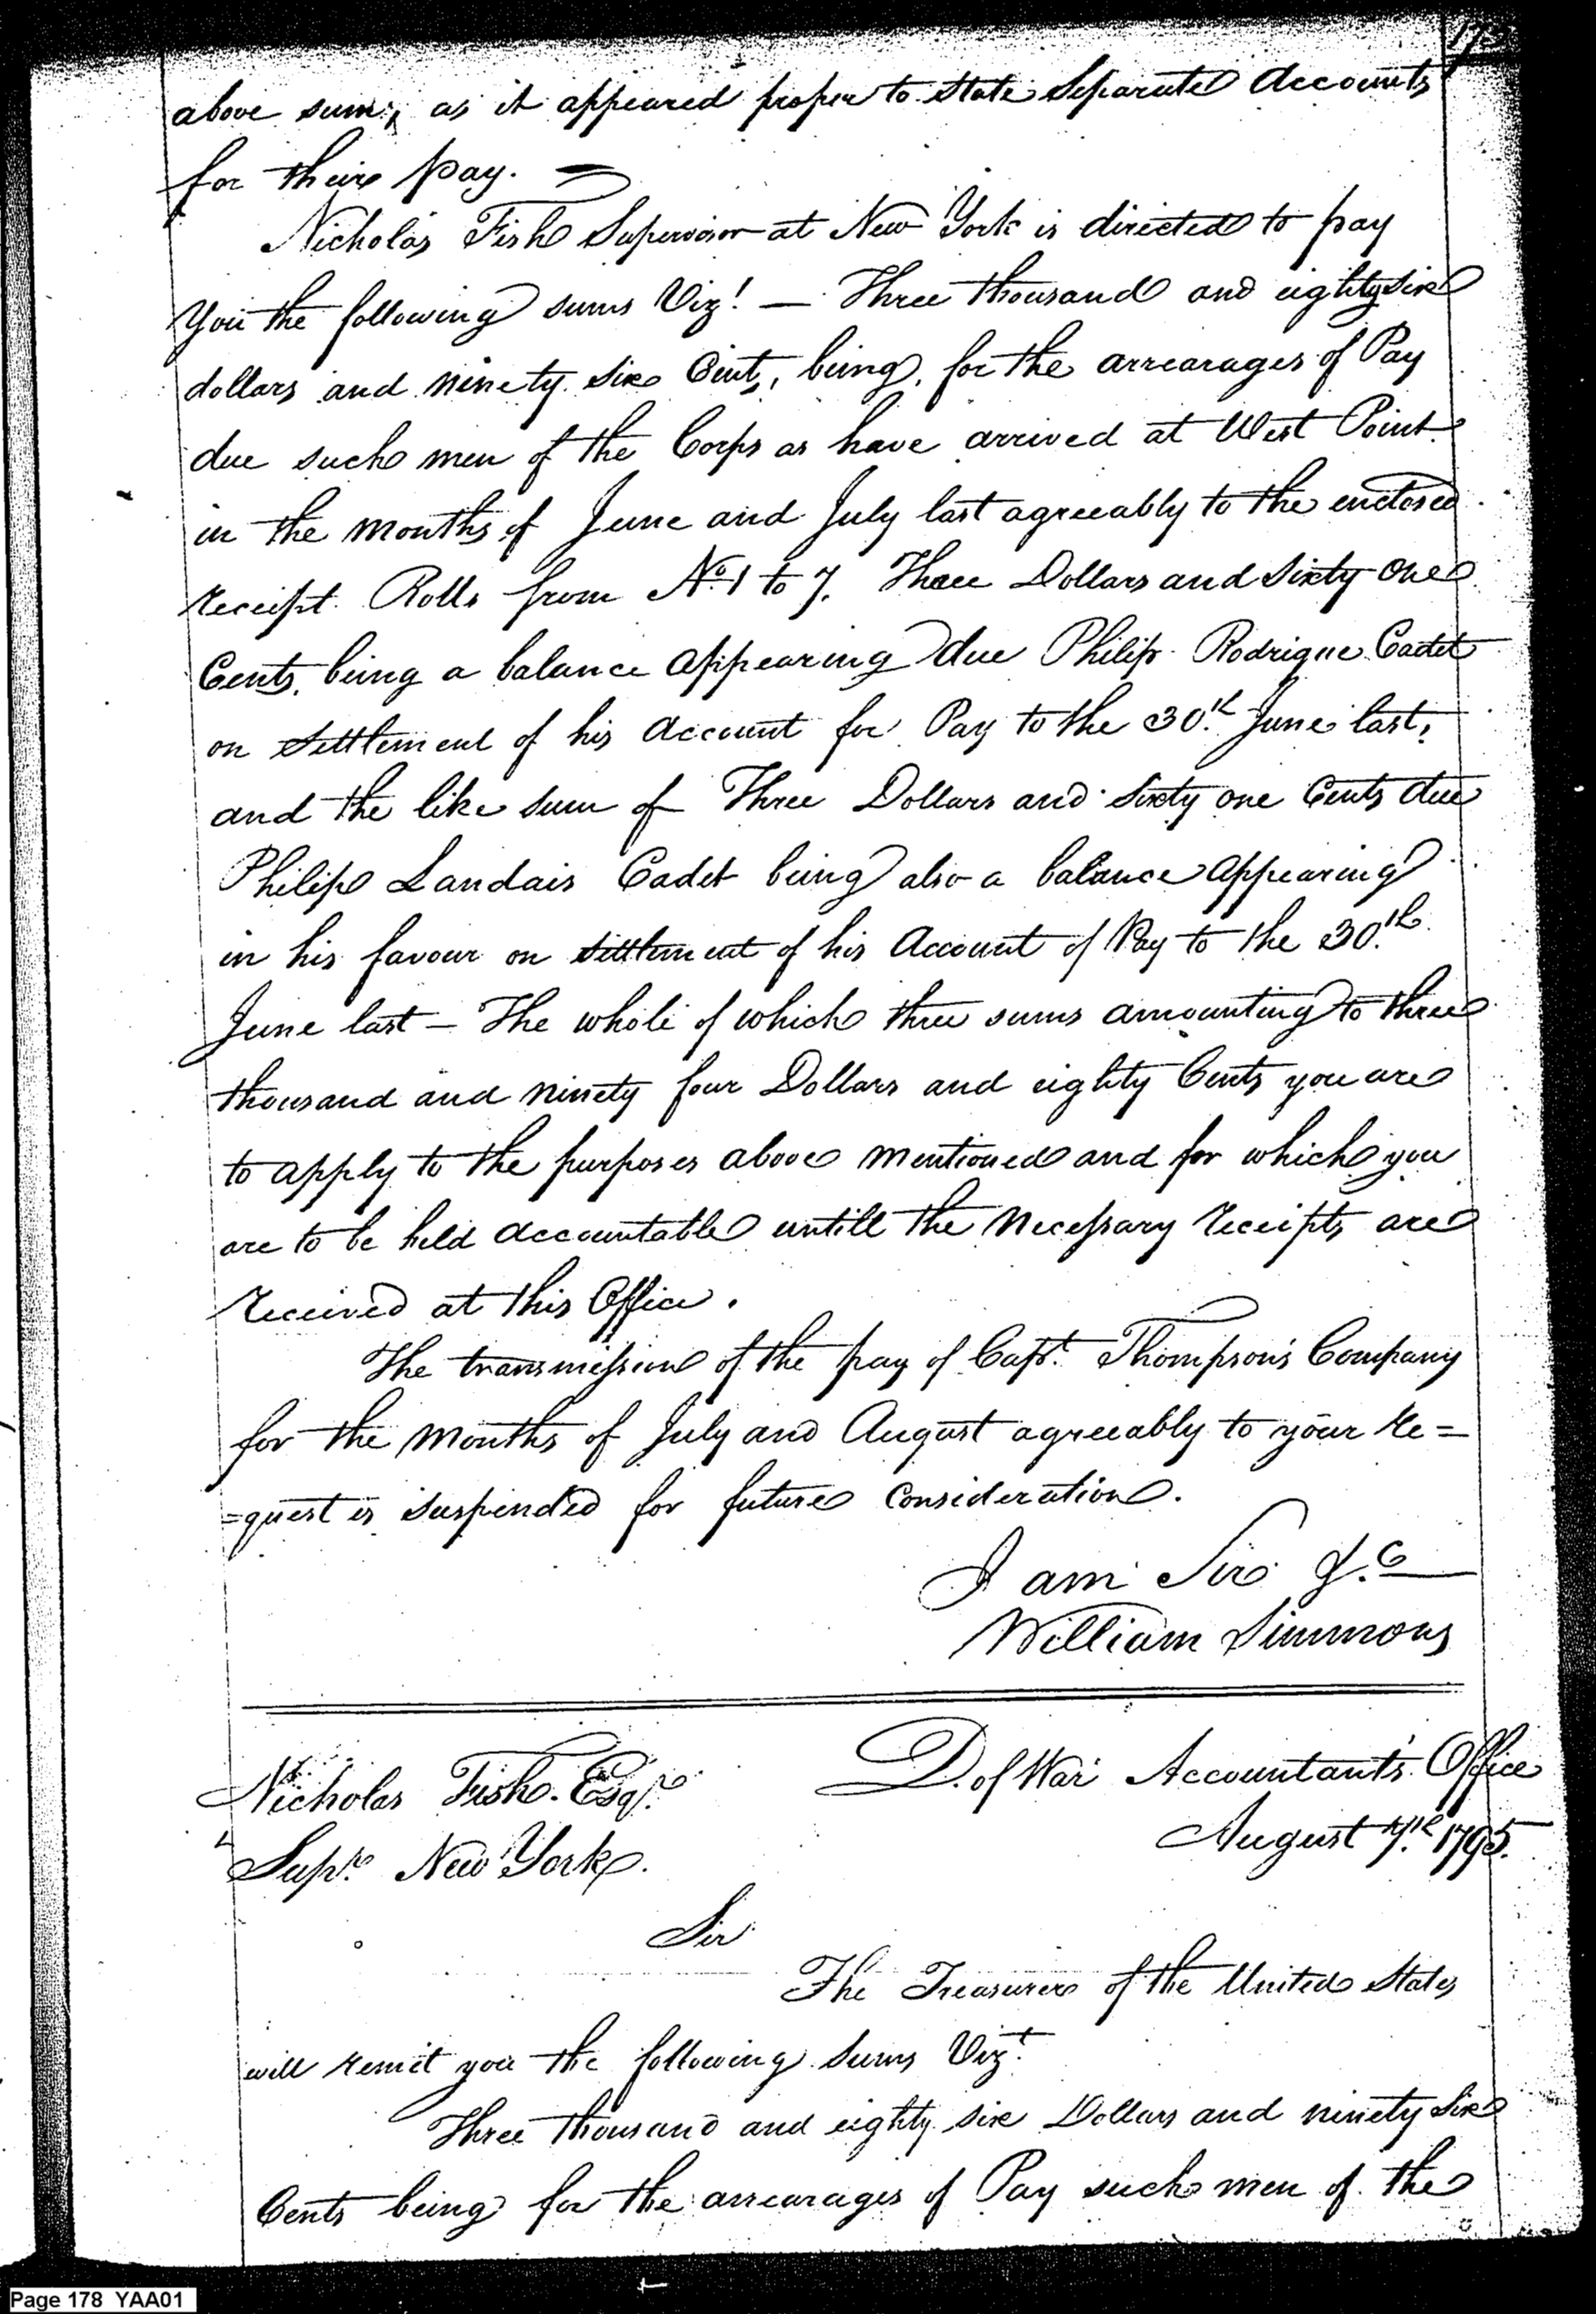 above sum, as it appeared proper to state Separate Accounts
for their pay. —
Nicholas Fish Supervisor at New York is directed to pay
You the following sums Vizt. — Three thousand and eighty six
dollars and ninety six Cents, being, for the arrearages of Pay
due such men of the Corps as have arrived at West Point
in the months of June and July last agreeably to the enclosed
receipt Rolls from No. 1 to 7. Three Dollars and Sixty One
Cents, being a balance appearing due Philip Rodrigue Cadet
on Settlement of his Account for Pay to the 30th. June last,
and the like sum of Three Dollars and Sixty one Cents due
Philip Landais Cadet being also a balance appearing
in his favour on Settlement of his Account of Pay to the 30th.
June last — The whole of which three sums amounting to three
thousand and ninety four Dollars and eighty Cents you are
to apply to the purposes above mentioned and for which you
are to be held Accountable untill the Necessary receipts are
received at this Office.
The transmission of the pay of Capt. Thompson's Company
for the months of July and August agreeably to your Re=
=quest is suspended for future Consideration.
I am Sir &c
William Simmons
Nicholas Fish. Esqr.
D. of War Accountant's Office
August 7th. 1795.
Supr. New York.
Sir
The Treasurer of the United States
will remit you the following Sums Vizt.
Three thousand and eighty six Dollars and ninety Six
Cents being for the arrearages of Pay such men of the
Page 178 YAA01